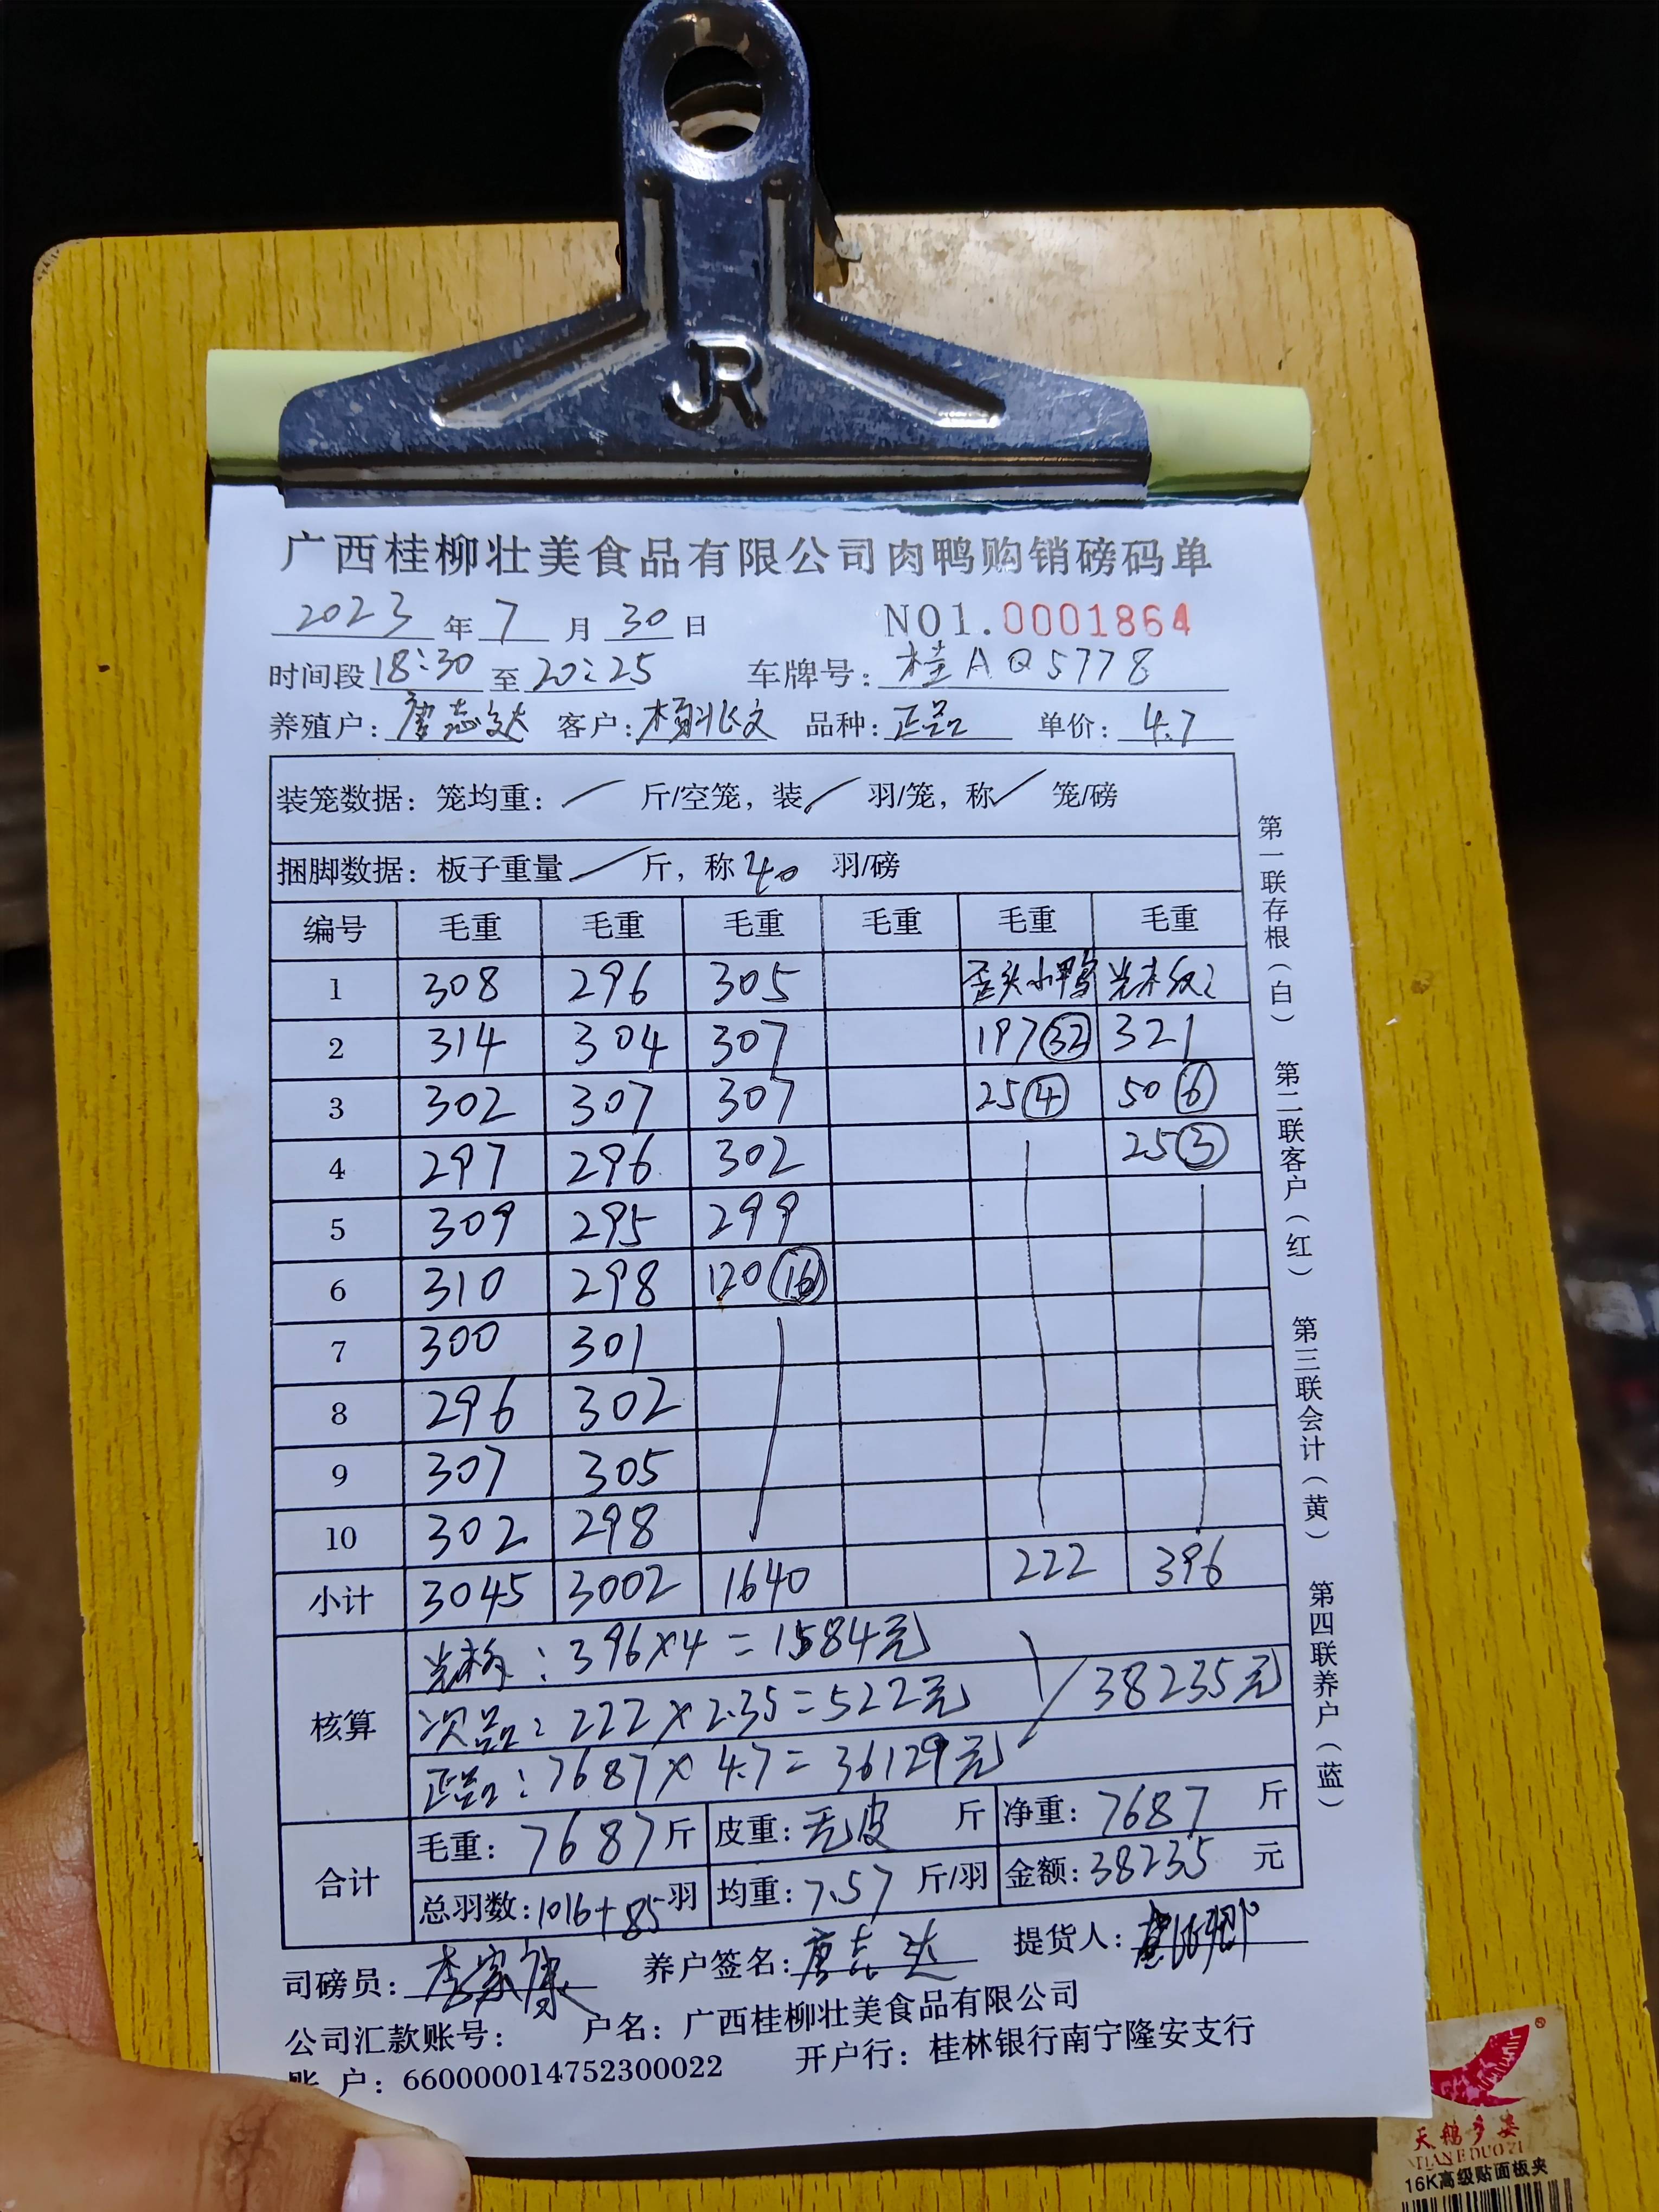 JR
广西桂柳壮美食品有限公司肉鸭购销磅码单
2023 年 7 月 30 日 NO1.0001864
时间段 18:30 至 20:25 车牌号: 桂AQ5778
养殖户: 志达 客户: 文 品种: 正品 单价: 4.7
装笼数据: 笼均重: / 斤/空笼, 装 / 羽/笼, 称 / 笼/磅
捆脚数据: 板子重量 / 斤, 称 40 羽/磅
编号 毛重 毛重 毛重 毛重 毛重 毛重
1 308 296 305 歪头小鸭
2 314 304 307 197 32 321
3 302 307 307 25 4 50 6
4 297 296 302 25 3
5 309 295 299
6 310 298 120 16
7 300 301
8 296 302
9 307 305
10 302 298
小计 3045 3002 1640 222 396
核算
: 396×4=1584元
次品: 222×2.35=522元 38235元
正品: 7687×4.7=36129元
合计
毛重: 7687斤 皮重: 无皮 斤 净重: 7687 斤
总羽数: 1016+85羽 均重: 7.57 斤/羽 金额: 38235 元
司磅员: 李家康 养户签名: 志达 提货人:
公司汇款账号: 户名: 广西桂柳壮美食品有限公司
账 户: 660000014752300022 开户行: 桂林银行南宁隆安支行
第一联存根(白) 第二联客户(红) 第三联会计(黄) 第四联养户(蓝)
天鹅多姿
TIANEDUOZI
16K高级贴面板夹